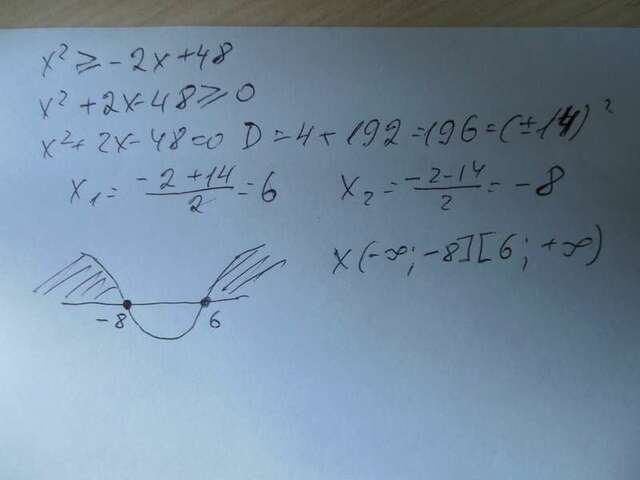 x² ≥ -2x+48
x² + 2x-48 ≥ 0
x² + 2x-48=0 D=4+192=196=(±14)²
x₁ = (-2+14)/2 = 6 x₂ = (-2-14)/2 = -8
x(-∞; -8][6; +∞)
-8 6